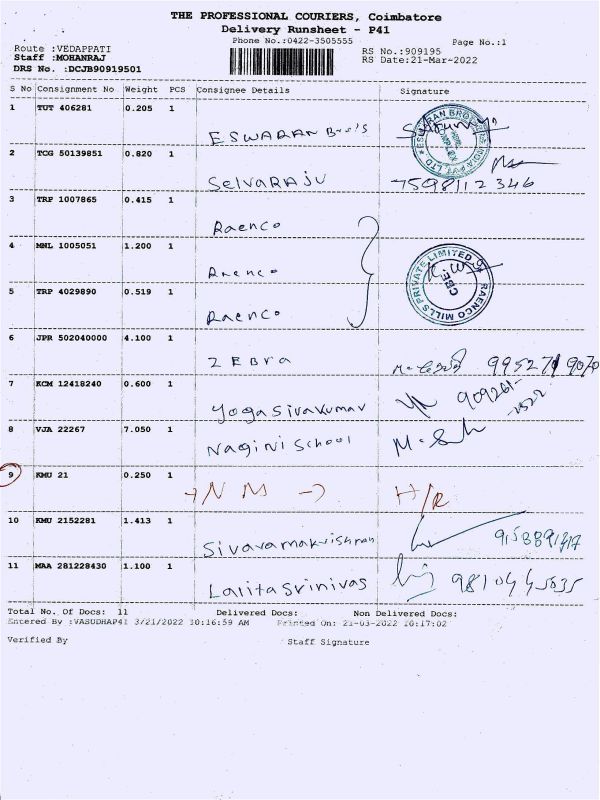 THE PROFESSIONAL COURIERS, Coimbatore
Delivery Runsheet - P41
Phone No.:0422-3505555 Page No.:1
Route :VEDAPPATI RS No.:909195
Staff :MOHANRAJ RS Date:21-Mar-2022
DRS No. :DCJB90919501
S No Consignment No Weight PCS Consignee Details Signature
1 TUT 406281 0.205 1
ESWARAN Bro's
2 TCG 50139851 0.820 1
SelvaRAJU 7598112346
3 TRP 1007865 0.415 1
Raenco
4 MNL 1005051 1.200 1
Raenco
RAENCO MILLS PRIVATE LIMITED
CBE
5 TRP 4029890 0.519 1
Raenco
6 JPR 502040000 4.100 1
ZEBRA
7 KCM 12418240 0.600 1
Yoga Sivakumar
8 VJA 22267 7.050 1
Nagini School
9 KMU 21 0.250 1
→ N M → H/R
10 KMU 2152281 1.413 1
Sivaramakrishnan
11 MAA 281228430 1.100 1
Lalita Srinivas
Total No. Of Docs: 11 Delivered Docs: Non Delivered Docs:
Entered By :VASUDHAP41 3/21/2022 10:16:59 AM Printed On: 21-03-2022 10:17:02
Verified By Staff Signature